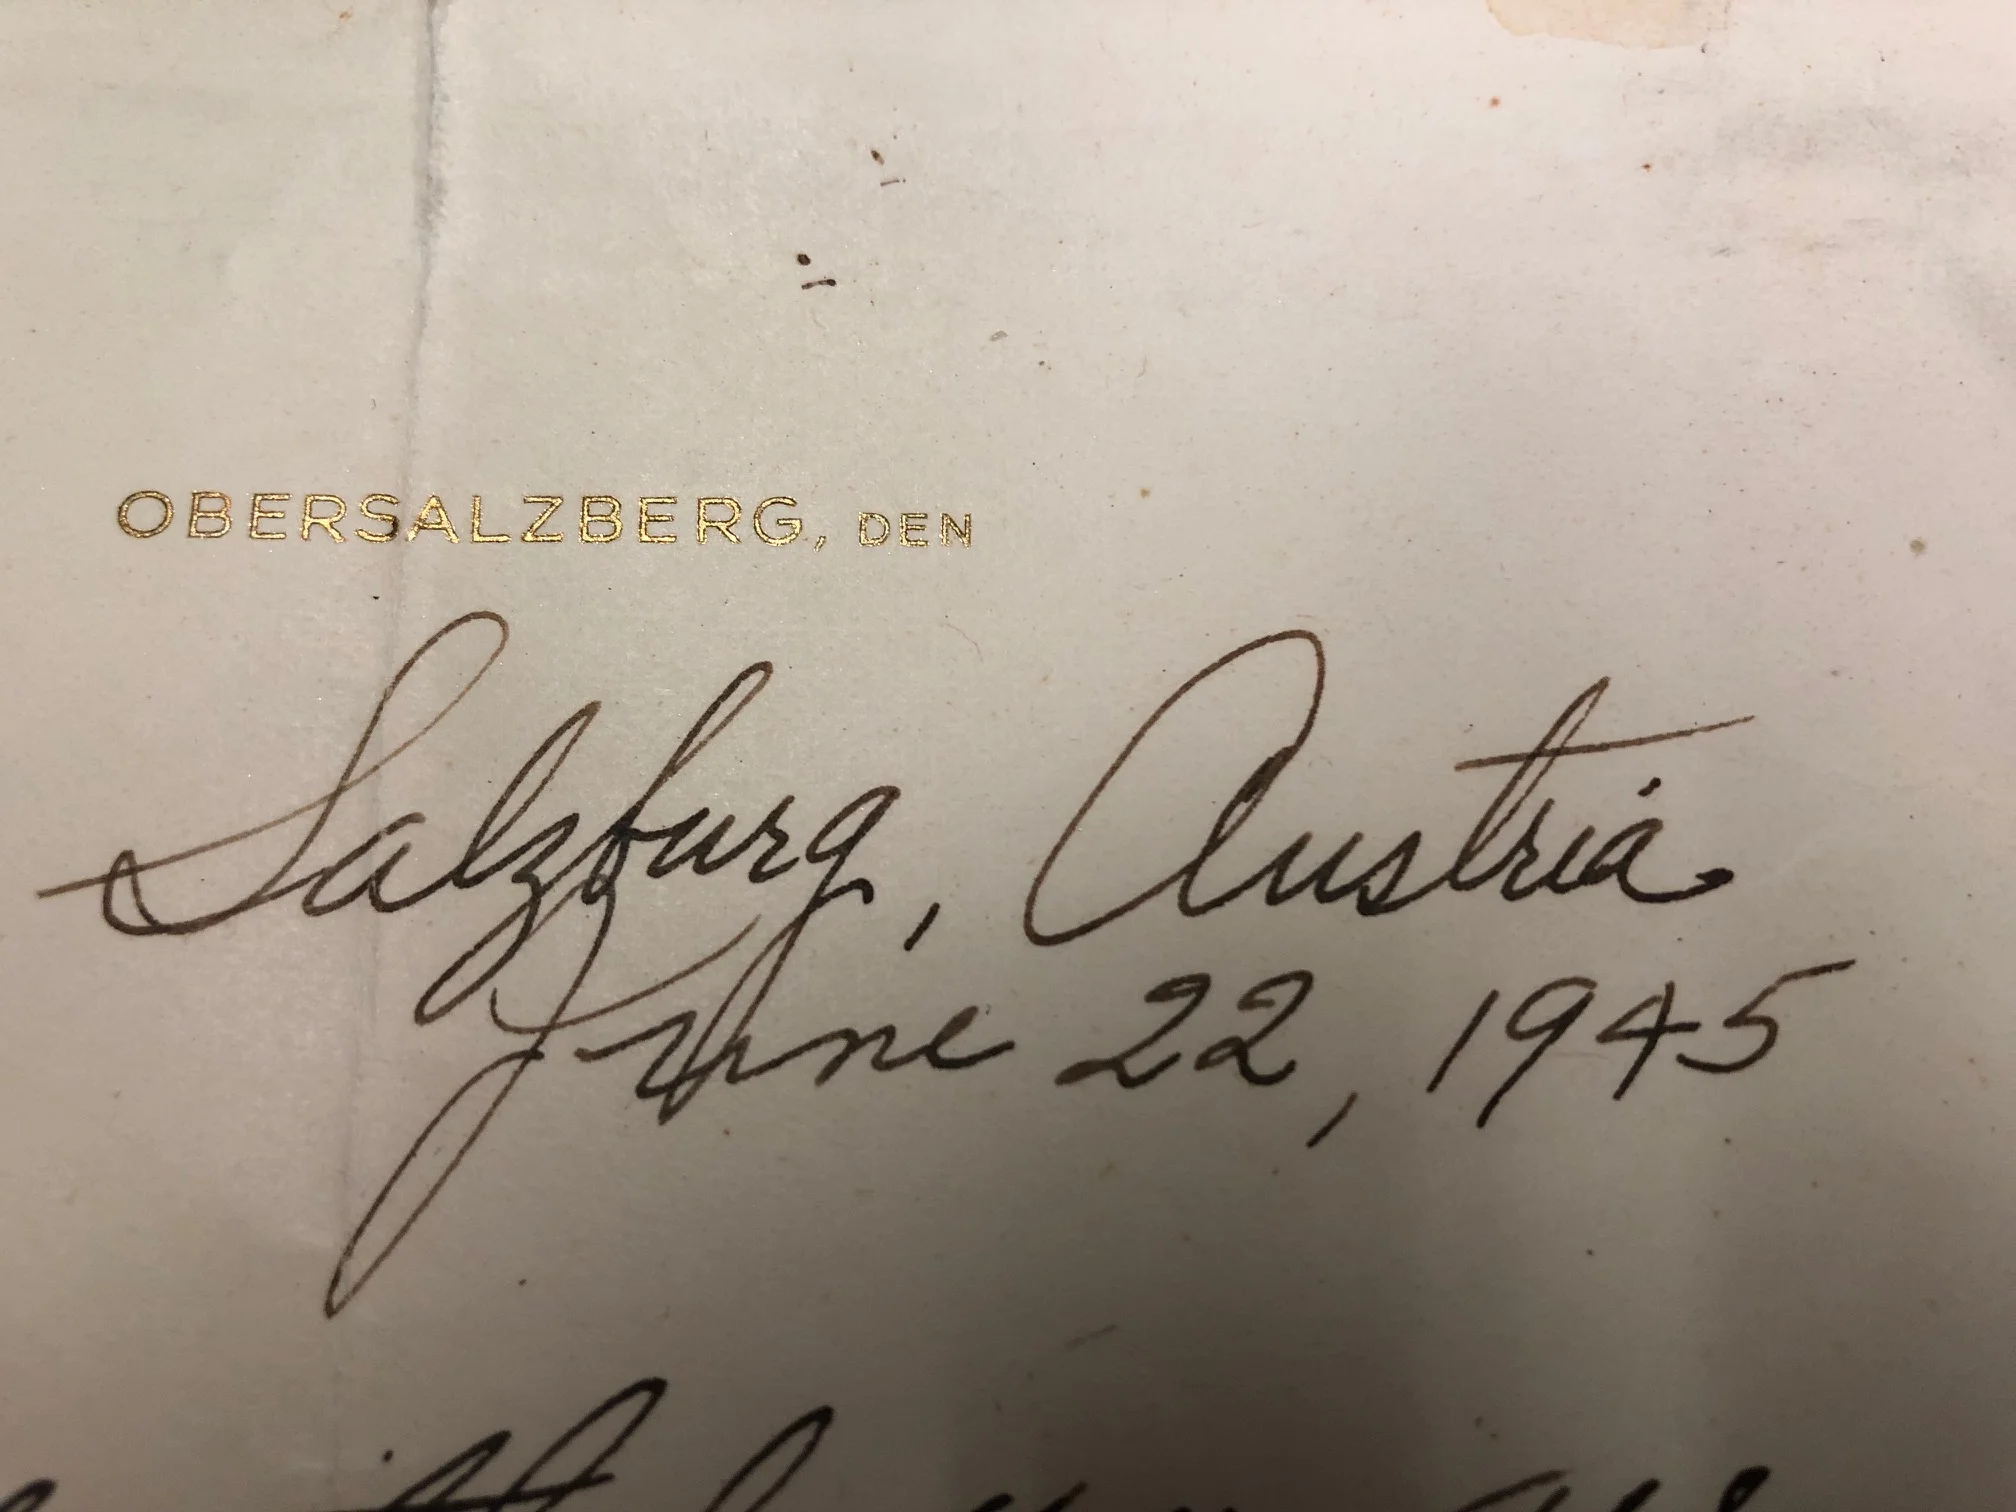 OBERSALZBERG, DEN
Salzburg, Austria
June 22, 1945